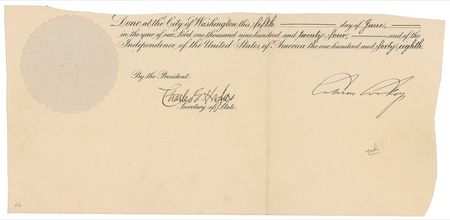 Done at the City of Washington this fifth day of June,
in the year of our Lord one thousand nine hundred and twenty four, and of the
Independence of the United States of America the one hundred and forty eighth.
By the President:
Charles E. Hughes
Secretary of State.